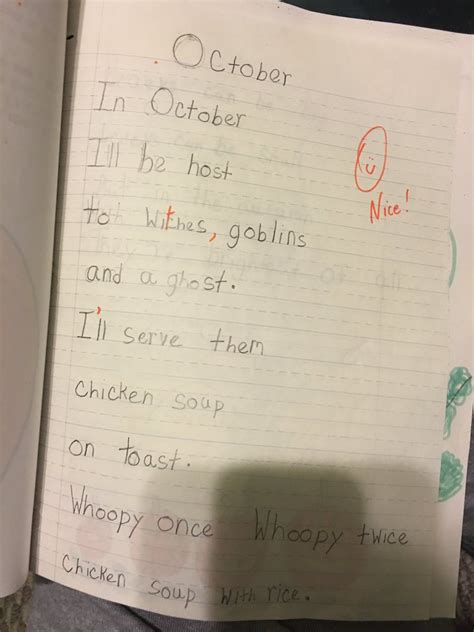 October
In October
I'll be host
Nice!
to witches, goblins
and a ghost.
I'll serve them
chicken soup
on toast.
Whoopy once Whoopy twice
Chicken soup with rice.